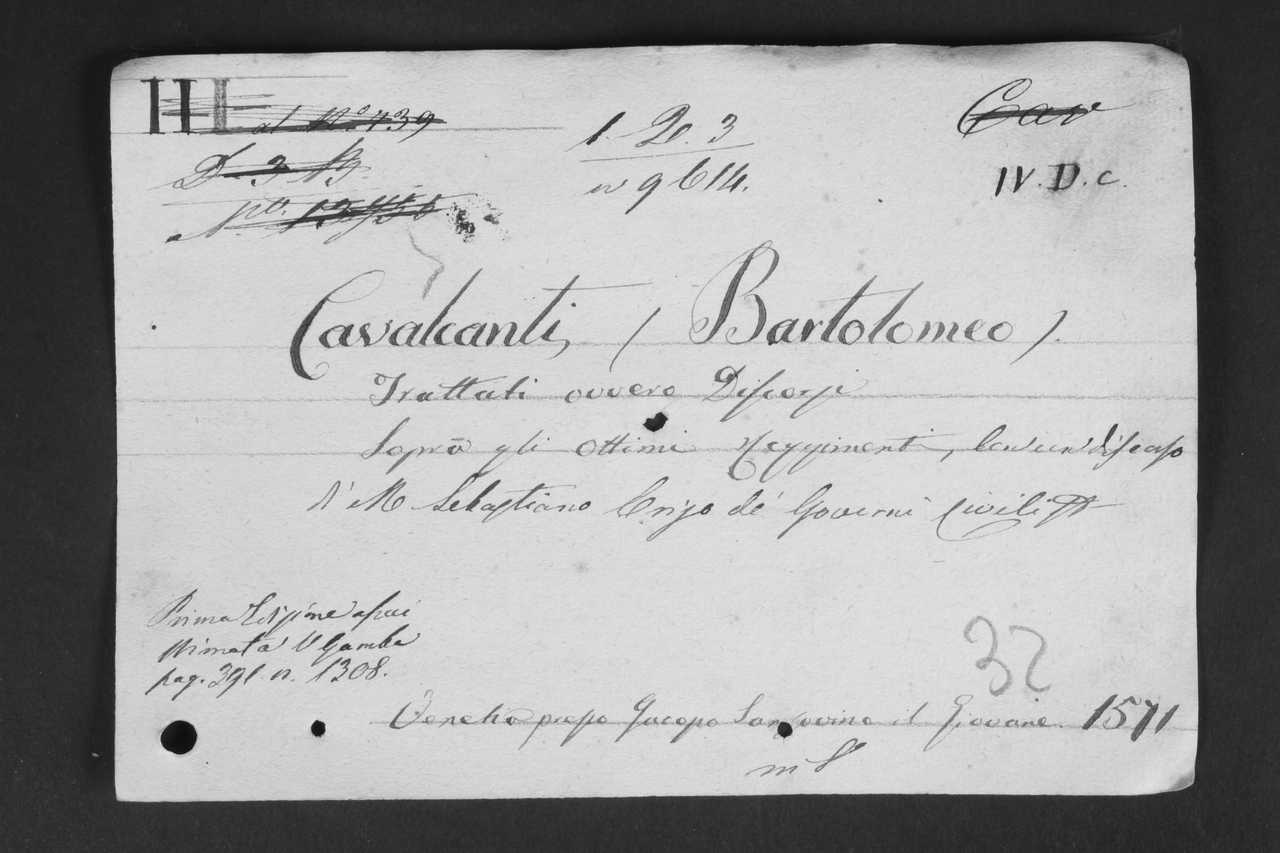 III al N.º 739
1. 2o. 3
Cav
D. 3 No.
nº 9614.
IV. D. c.
Cavalcanti, (Bartolomeo).
Trattati overo Discorsi
Sopra gli ottimi Reggimenti, Con un discorso
di M Sebastiano Erizo de' Governi Civili
Prima Edizione assai
stimata V Gamba
pag. 391. n. 1308.
32
Venetia presso Jacopo Sansovino il Giovane. 1571
in 8º